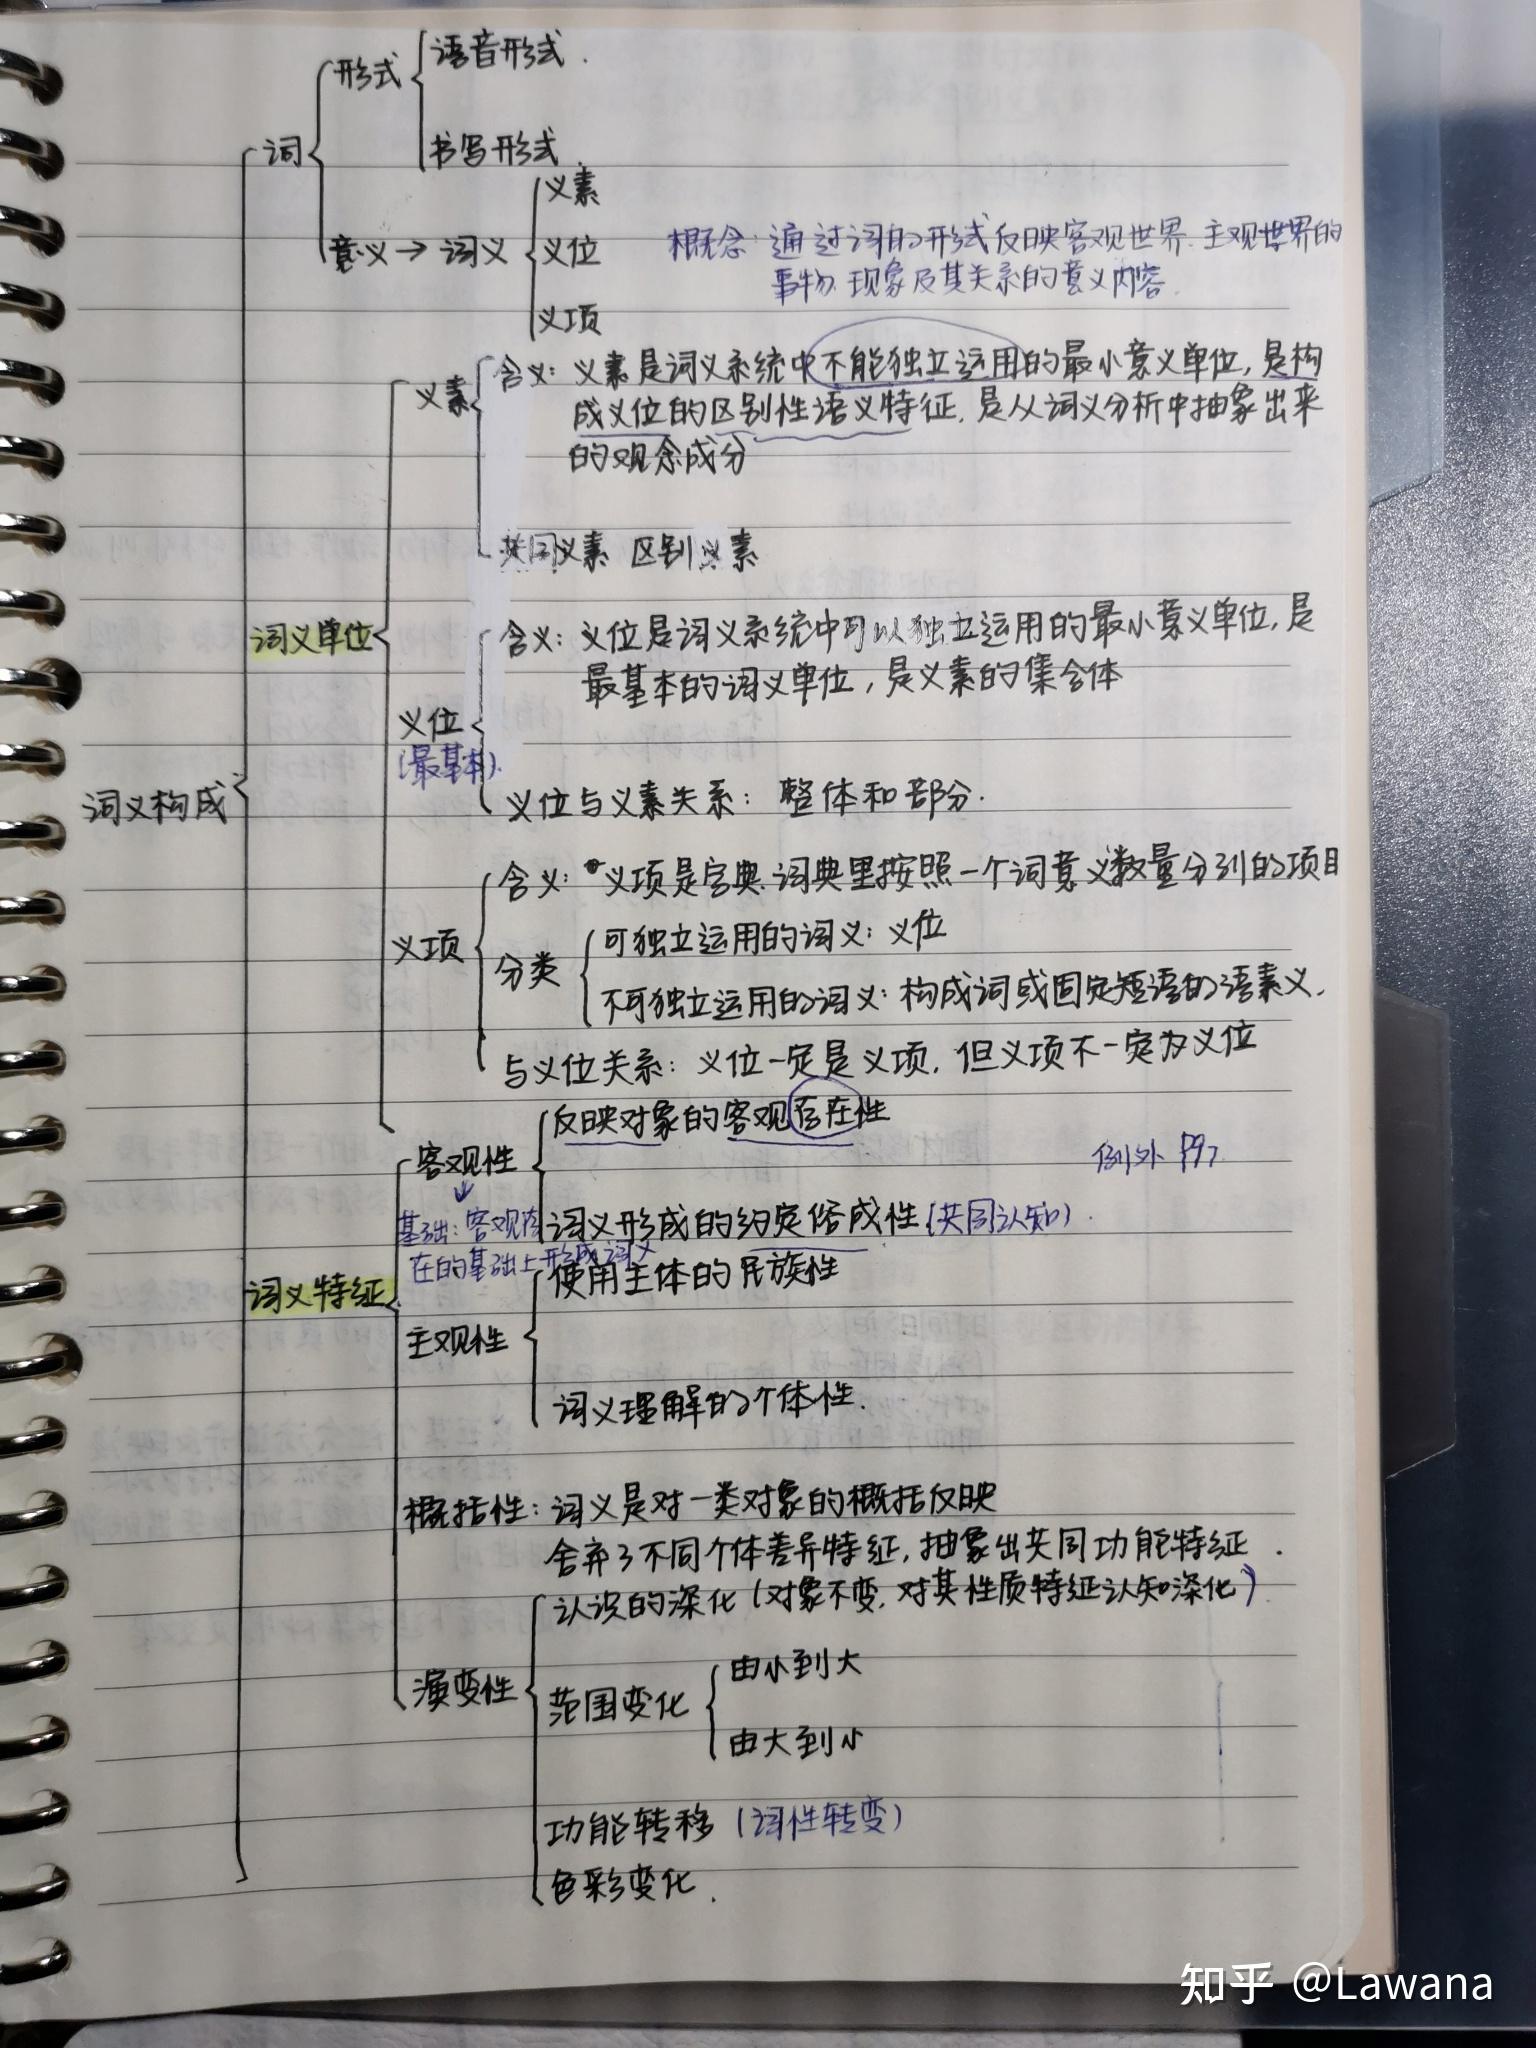 语音形式.
形式
书写形式.
词
义素
意义→词义
义位
义项
概念: 通过词的形式反映客观世界.主观世界的
事物.现象及其关系的意义内容.
义素
含义: 义素是词义系统中不能独立运用的最小意义单位, 是构
成义位的区别性语义特征, 是从词义分析中抽象出来
的观念成分
共同义素 区别义素
词义单位
含义: 义位是词义系统中可以独立运用的最小意义单位, 是
最基本的词义单位, 是义素的集合体
义位
(最基本).
义位与义素关系: 整体和部分.
词义构成
含义: 义项是字典.词典里按照一个词意义数量分列的项目
义项
分类
可独立运用的词义: 义位
不可独立运用的词义: 构成词或固定短语的语素义.
与义位关系: 义位一定是义项, 但义项不一定为义位
反映对象的客观存在性
客观性
例外 P97
词义形成的约定俗成性(共同认知).
基础: 客观存
在的基础上形成词义
词义特征
使用主体的民族性
主观性
词义理解的个体性.
概括性: 词义是对一类对象的概括反映
舍弃了不同个体差异特征, 抽象出共同功能特征.
认识的深化(对象不变, 对其性质特征认知深化)
演变性
范围变化
由小到大
由大到小
功能转移(词性转变)
色彩变化.
知乎 @Lawana